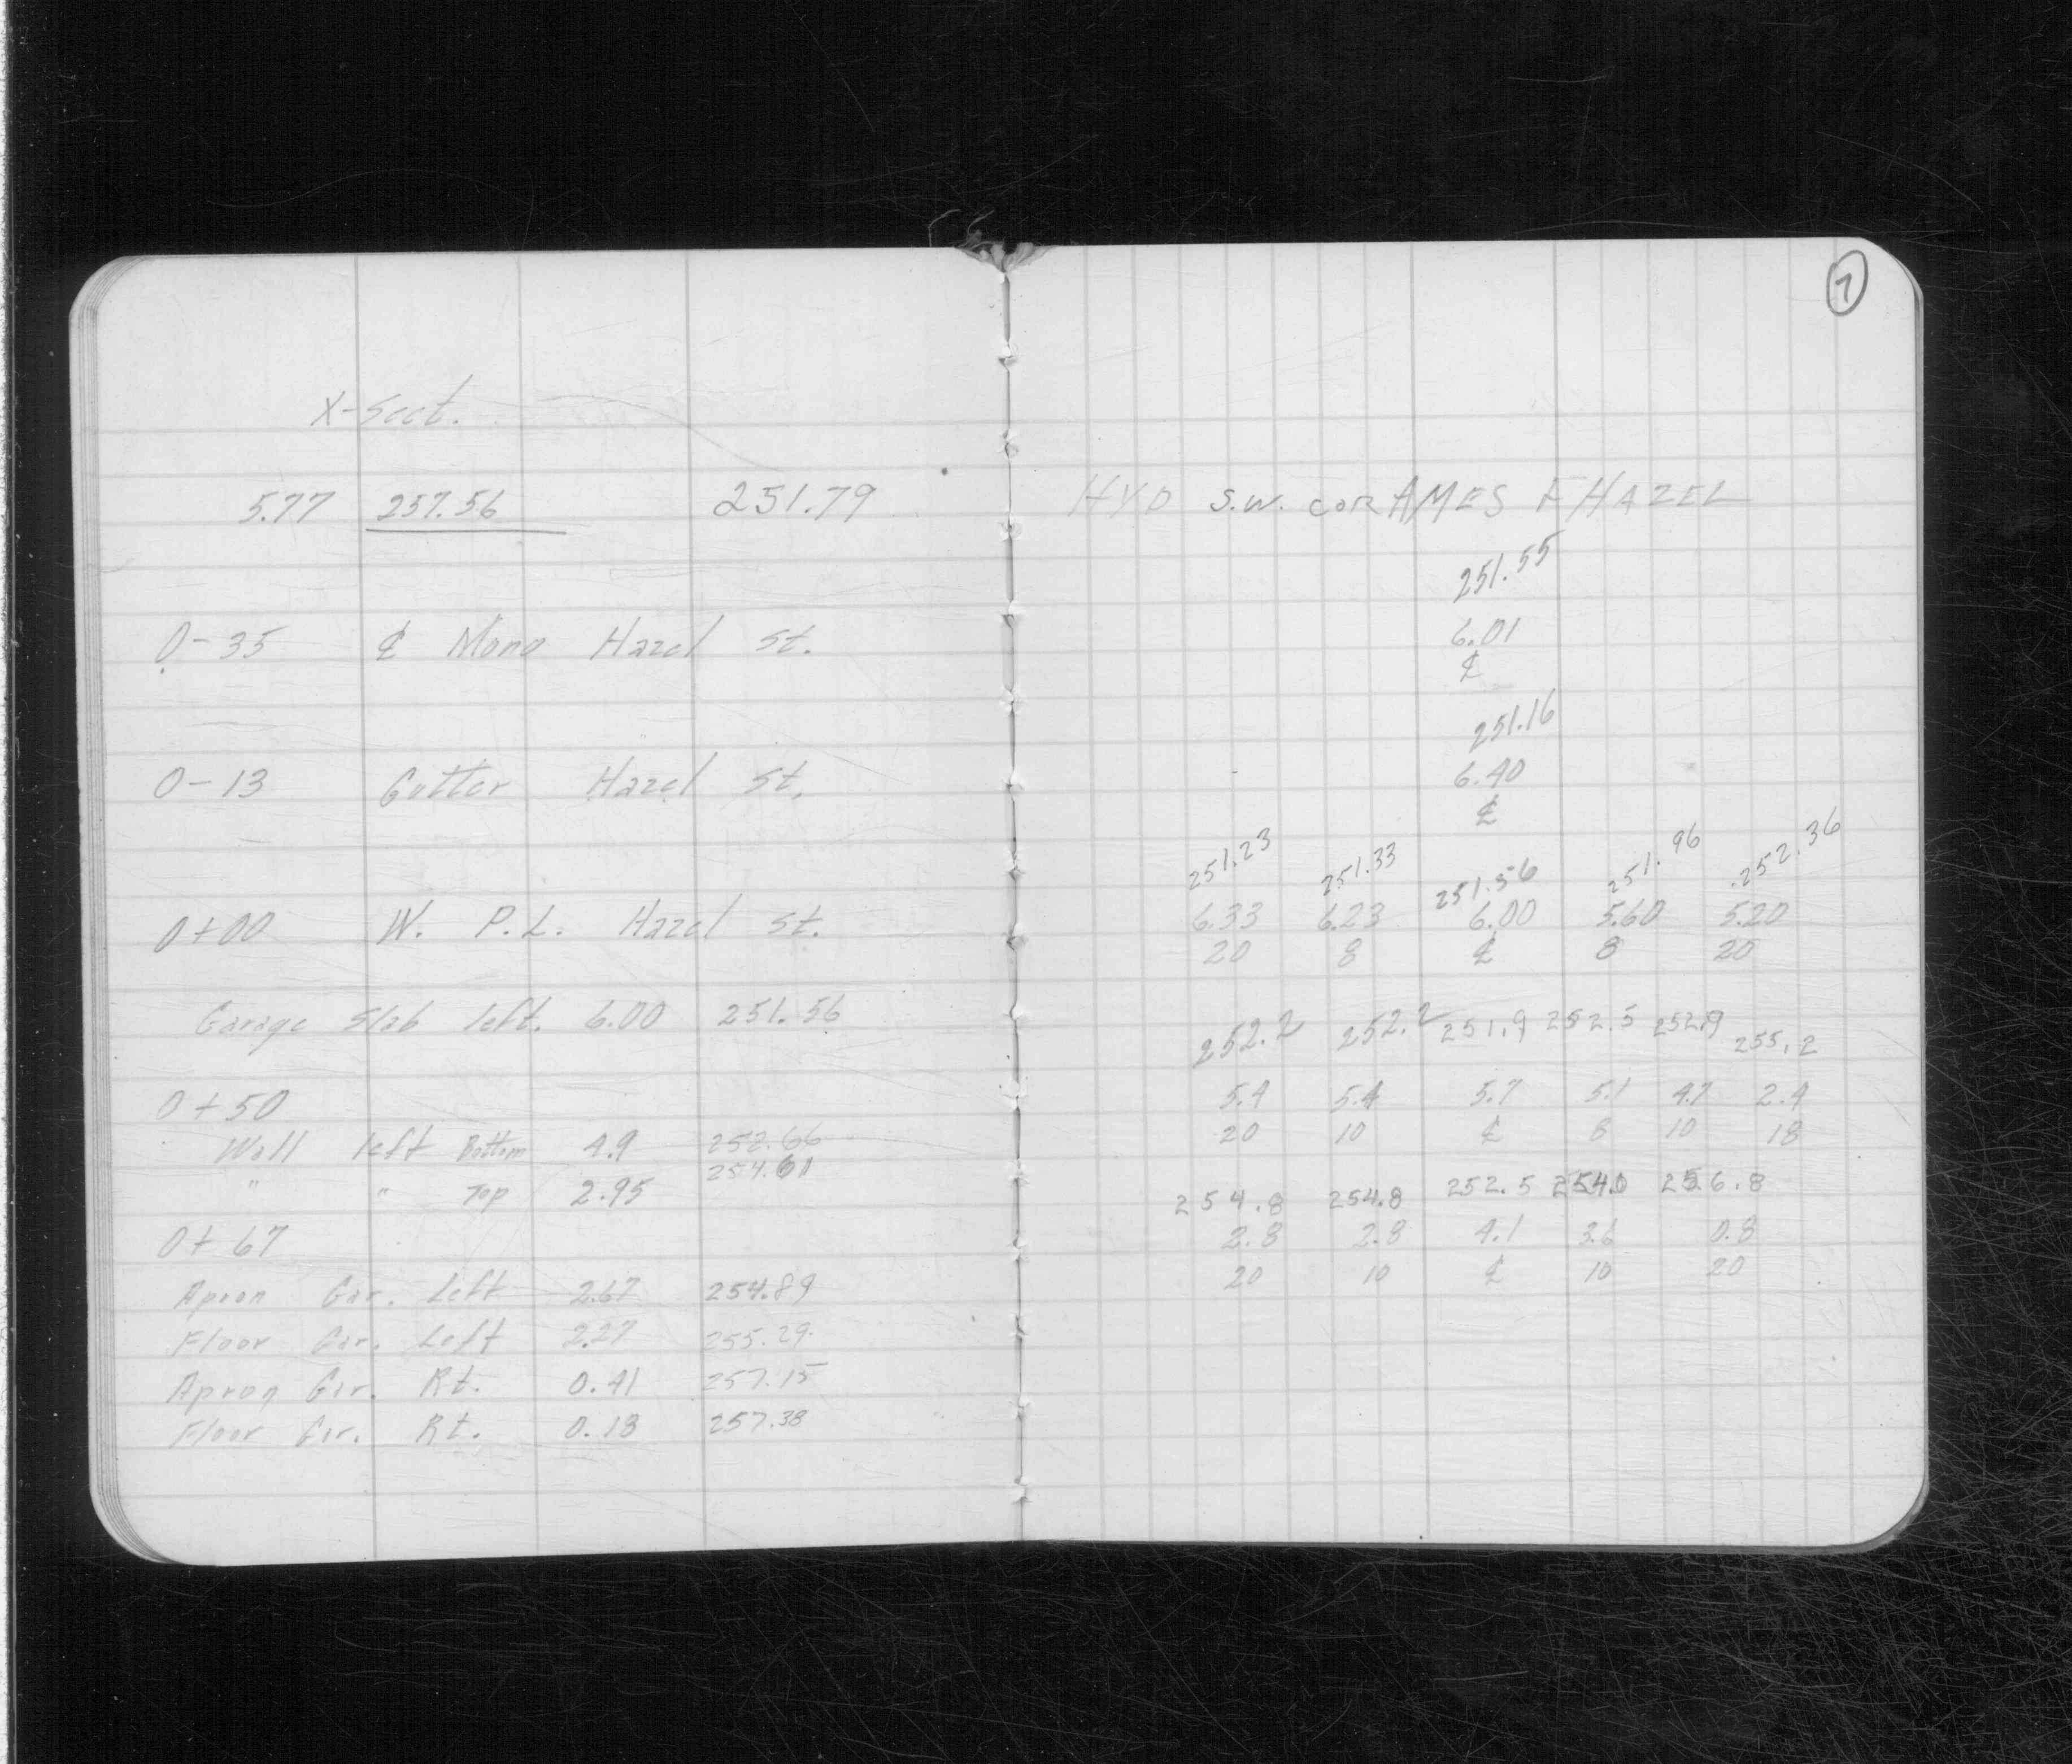 X-Sect.
5.77 257.56 251.79
0-35 ℄ Mono Hazel St.
0-13 Gutter Hazel St.
0+00 W. P.L. Hazel St.
Garage Slab left. 6.00 251.56
0+50
Wall left Bottom 4.9 252.66
" " Top 2.95 254.61
0+67
Apron Gar. Left 2.67 254.89
Floor Gar. Left 2.27 255.29
Apron Gar. Rt. 0.41 257.15
Floor Gar. Rt. 0.18 257.38
7
HYD S.W. COR AMES & HAZEL
251.55
6.01
℄
251.16
6.40
℄
251.23 251.33 251.56 251.96 252.36
6.33 6.23 6.00 5.60 5.20
20 8 ℄ 8 20
252.2 252.2 251.9 252.5 252.9 255.2
5.4 5.4 5.7 5.1 4.7 2.4
20 10 ℄ 8 10 18
254.8 254.8 252.5 254.0 256.8
2.8 2.8 4.1 3.6 0.8
20 10 ℄ 10 20